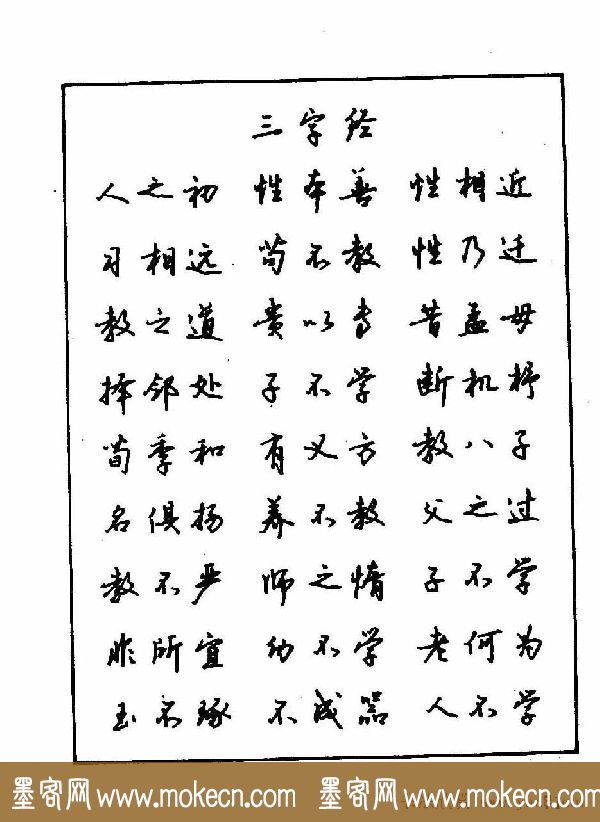 三字经
人之初 性本善 性相近
习相远 苟不教 性乃迁
教之道 贵以专 昔孟母
择邻处 子不学 断机杼
荀季和 有义方 教八子
名俱扬 养不教 父之过
教不严 师之惰 子不学
非所宜 幼不学 老何为
玉不琢 不成器 人不学
墨客网 www.mokecn.com 墨客网 www.mokecn.com